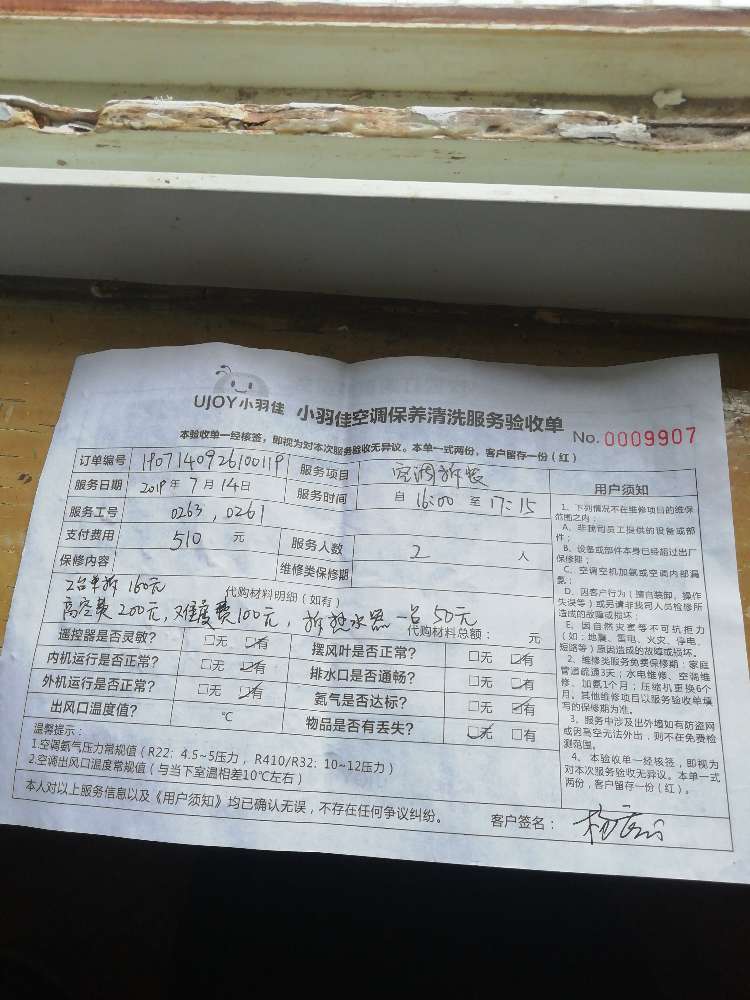 UJOY小羽佳 小羽佳空调保养清洗服务验收单
No. 0009907
本验收单一经核签，即视为对本次服务验收无异议。本单一式两份，客户留存一份（红）
订单编号 1907140926100119 服务项目 空调拆装
服务日期 2019年7月14日 服务时间 自 16:00 至 17:15
服务工号 0263，0261
支付费用 510 元 服务人数 2 人
保修内容 维修类保修期
2台单拆 160元 代购材料明细（如有）
高空费200元，难度费100元，拆热水器一台50元
代购材料总额： 元
遥控器是否灵敏？ □无 ☑有 摆风叶是否正常？ □无 ☑有
内机运行是否正常？ □无 ☑有 排水口是否通畅？ □无 ☑有
外机运行是否正常？ □无 ☑有 氨气是否达标？ □无 ☑有
出风口温度值？ ℃ 物品是否有丢失？ ☑无 □有
温馨提示：
1.空调氨气压力常规值（R22：4.5~5压力，R410/R32：10~12压力）
2.空调出风口温度常规值（与当下室温相差10℃左右）
本人对以上服务信息以及《用户须知》均已确认无误，不存在任何争议纠纷。 客户签名：
用户须知
1、下列情况不在维修项目的维保
范围之内：
A、非我司员工提供的设备或部
件；
B、设备或部件本身已经超过出厂
保修期；
C、空调空机加氨或空调内部漏
氨；
D、因客户行为（擅自装卸，操作
失误等）或另请非我司人员检修所
造成的故障或损坏；
E、因自然灾害等不可抗拒力
（如：地震、雷电、火灾、停电、
短路等）原因造成的故障或损坏。
2、维修类服务免费保修期：家庭
管道疏通3天；水电维修、空调维
修、加氨1个月；压缩机更换6个
月。其他维修项目以服务验收单填
写的保修期为准。
3、服务中涉及出外墙如有防盗网
或因高空无法外出，则不在免费检
测范围。
4、本验收单一经核签，即视为
对本次服务验收无异议。本单一式
两份，客户留存一份（红）。